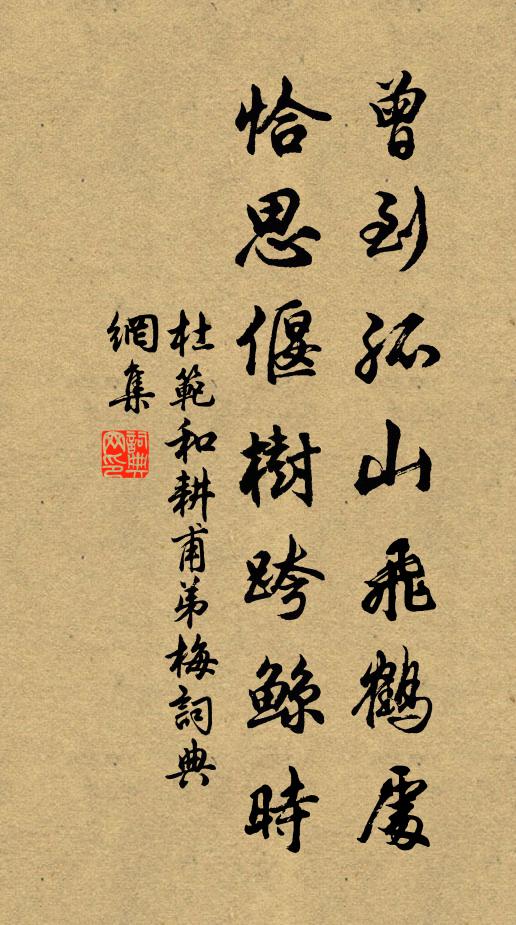 曾到孤山飛鶴處
恰思偃樹跨鯨時
杜範和耕甫弟梅詞典
網集
詞典網印